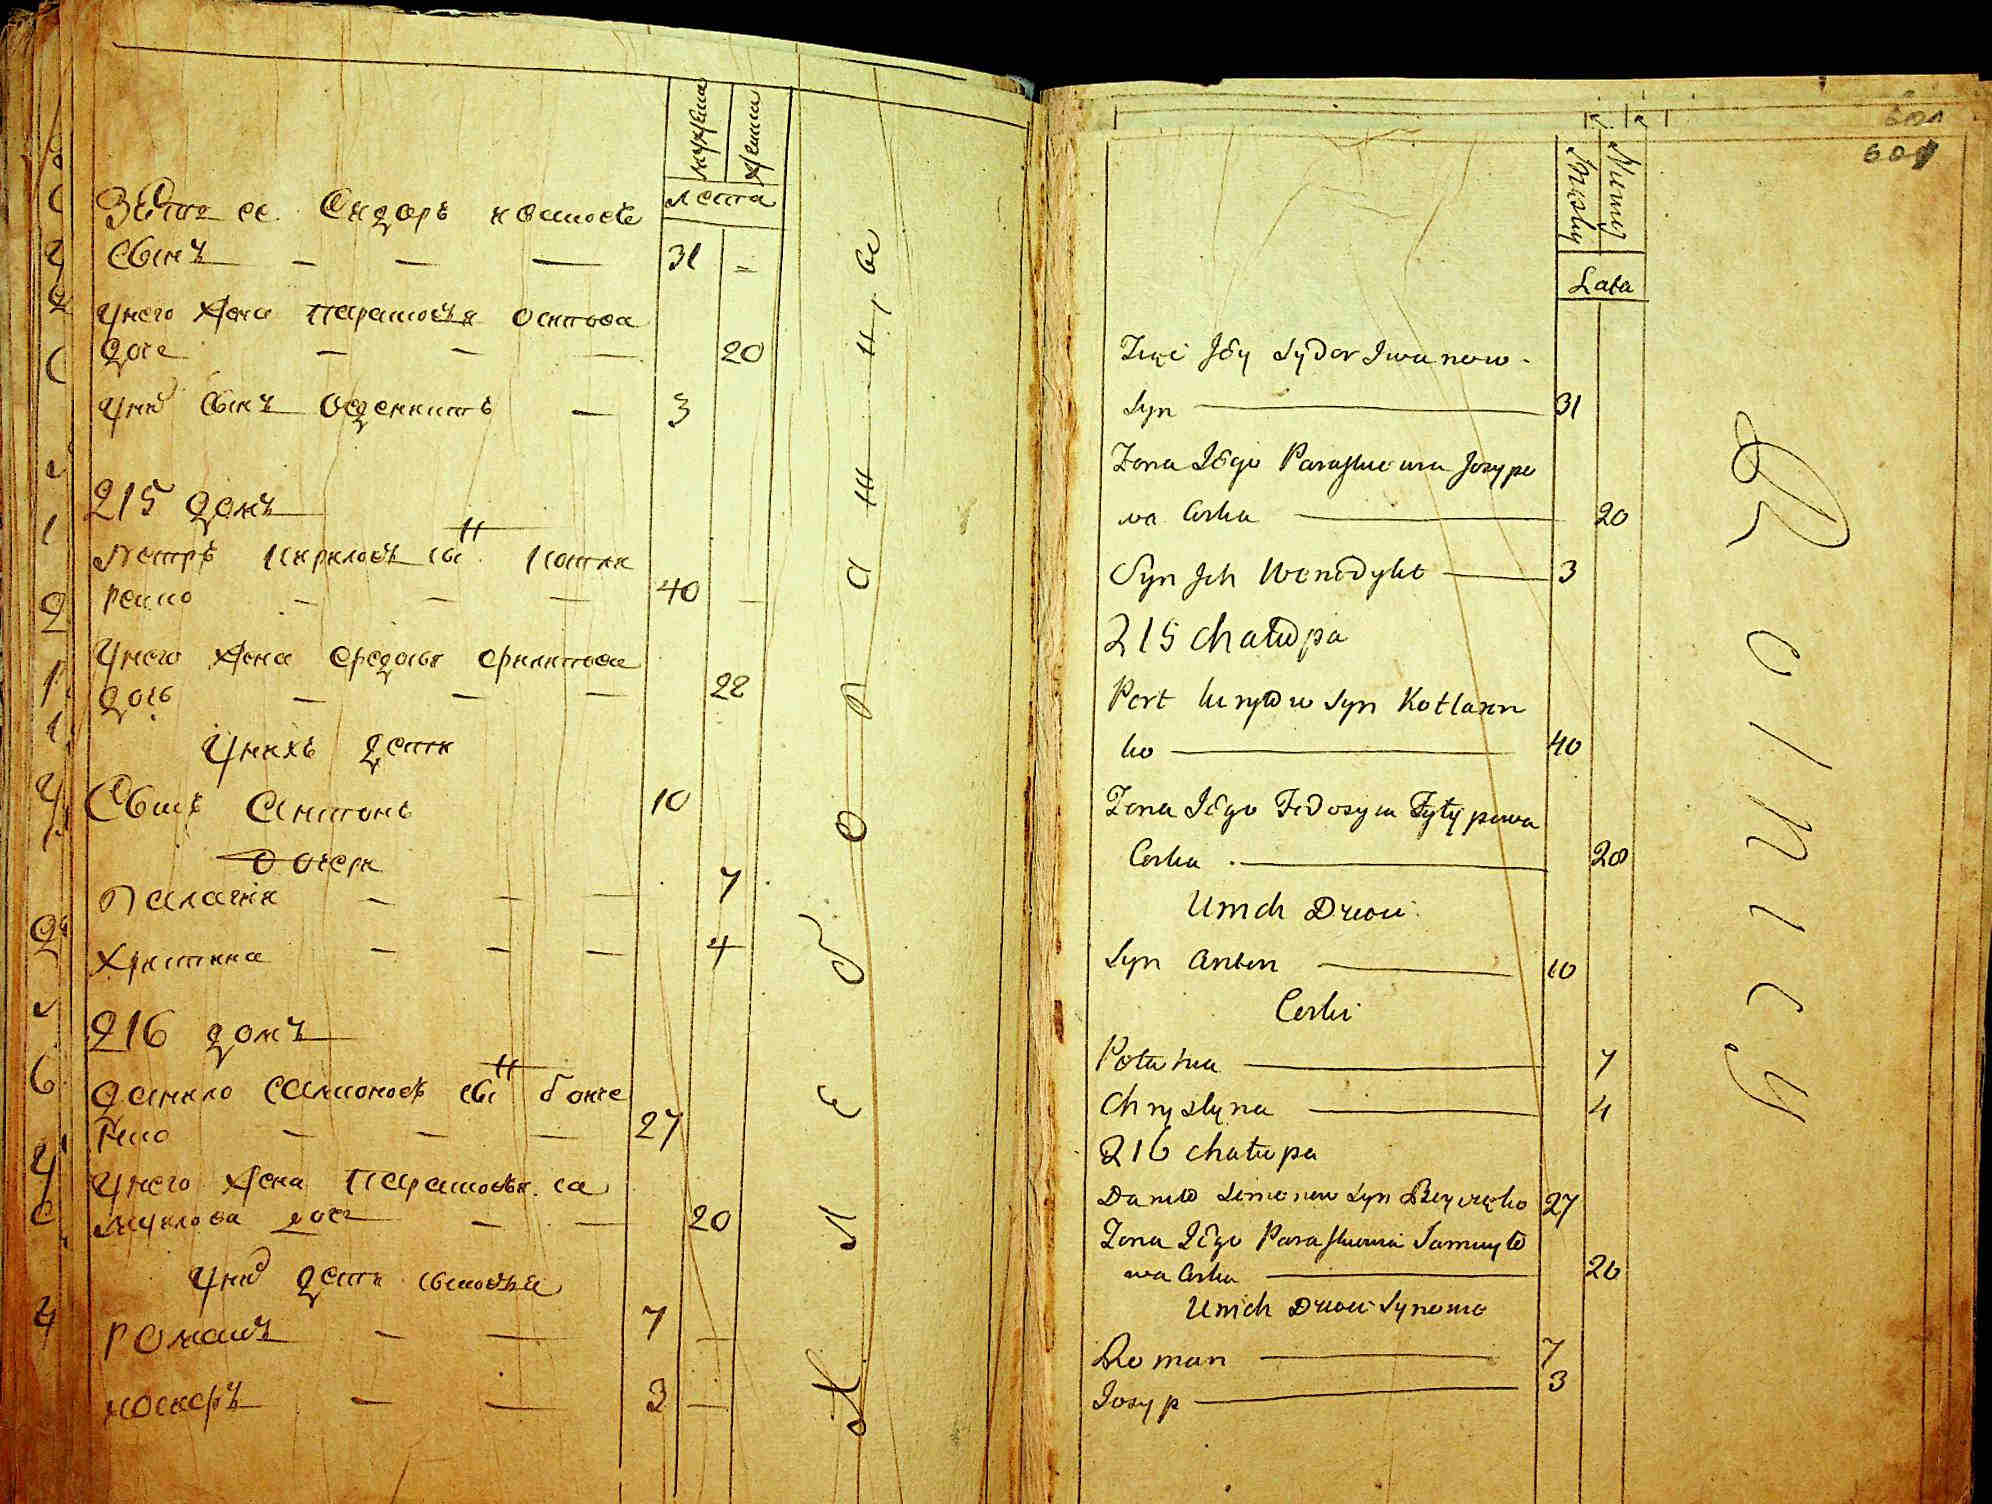 мужеска
женска
лета
Зять ее Сидоръ ивановъ
сынъ — — — 31 =
у него жена Парасковья осипова
дочь — — — 20
у них сынъ бедениктъ — 3
215 домъ
Петръ кириловъ сынъ котля
ренко — — — 40 —
у него жена Федосья филипова
дочь — — — 28
у нихъ дети
Сынъ Антонъ 10
дочери
Палагия — — — 7
Христина — — — 4
216 домъ
данило самоновъ сынъ бонче
ренко — — — 27
у него жена Парасковья са
муилова дочь — — 20
у них дети сыновья
Романъ — — 7 —
иосифъ — — 3 —
Хлеборо
601
601
Męskey
Niewiey
Lata
Zięć Jey Sydor Iwanow
Syn — 31
Zona Jego Paraskowia Josypo
wa Corka — 20
Syn Jch Wenedykt — 3
215 chałupa
Petr Kuryłow Syn Kotlaren
ko — 40
Zona Jego Fedosyia Fyłypowa
Corka — 28
U nich Dzieci
Syn Anton — 10
Corki
Połahia — 7
Chrystyna — 4
216 chałupa
Daniło Semonow Syn 27
Zona Jego Paraskowia Samuyło
wa Corka — 20
U nich Dzieci Synowie
Roman — 7
Josyp — 3
Rolnicy